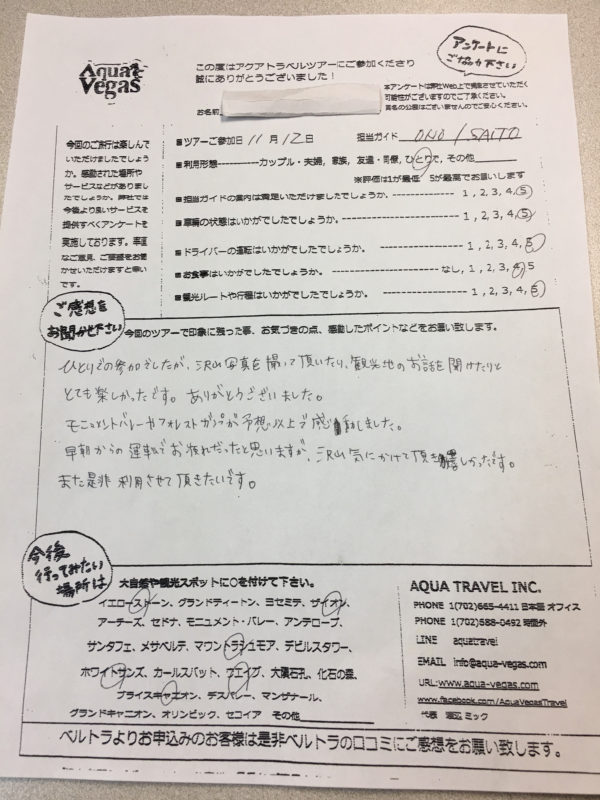 Aqua Vegas
この度はアクアトラベルツアーにご参加くださり
誠にありがとうございました！
アンケートに
ご協力下さい
本アンケートは弊社Web上で発表させていただく
可能性がございますのでご了承ください。
お名前
今回のご旅行は楽しんで
いただけましたでしょう
か。感動された場所や
サービスなどがありまし
たでしょうか。弊社では
今後より良いサービスを
提供すべくアンケートを
実施しております。率直
なご意見、ご要望をお聞
かせいただけますと幸い
です。
■ツアーご参加日 11月 12日 担当ガイド ONO / SAITO
■利用形態------------カップル・夫婦, 家族, 友達・同僚, ひとりで, その他
※評価は1が最低 5が最高でお願いします
■担当ガイドの案内は満足いただけましたでしょうか。 1, 2, 3, 4, 5
■車輌の状態はいかがでしたでしょうか。 1, 2, 3, 4, 5
■ドライバーの運転はいかがでしたでしょうか。 1, 2, 3, 4, 5
■お食事はいかがでしたでしょうか。 なし, 1, 2, 3, 4, 5
■観光ルートや行程はいかがでしたでしょうか。 1, 2, 3, 4, 5
ご感想を
お聞かせ下さい
今回のツアーで印象に残った事、お気づきの点、感動したポイントなどをお願い致します。
ひとりでの参加でしたが、沢山写真を撮って頂いたり、観光地のお話を聞けたりと
とても楽しかったです。ありがとうございました。
モニュメントバレーやフォレストガンプが予想以上で感動しました。
早朝からの運転でお疲れだったと思いますが、沢山気にかけて頂き嬉しかったです。
また是非利用させて頂きたいです。
今後
行ってみたい
場所は
大自然や観光スポットに○を付けて下さい。
イエローストーン、グランドティートン、ヨセミテ、ザイオン、
アーチーズ、セドナ、モニュメント・バレー、アンテロープ、
サンタフェ、メサベルデ、マウントラシュモア、デビルスタワー、
ホワイトサンズ、カールスバット、ウエイブ、大隕石孔、化石の森、
ブライスキャニオン、デスバレー、マンザナール、
グランドキャニオン、オリンピック、セコイア その他
AQUA TRAVEL INC.
PHONE 1(702)665-4411 日本語 オフィス
PHONE 1(702)688-0492 時間外
LINE aquatravel
EMAIL info@aqua-vegas.com
URL:www.aqua-vegas.com
www.facebook.com/AquaVegasTravel
代表 渡辺 ミック
ベルトラよりお申込みのお客様は是非ベルトラの口コミにご感想をお願い致します。